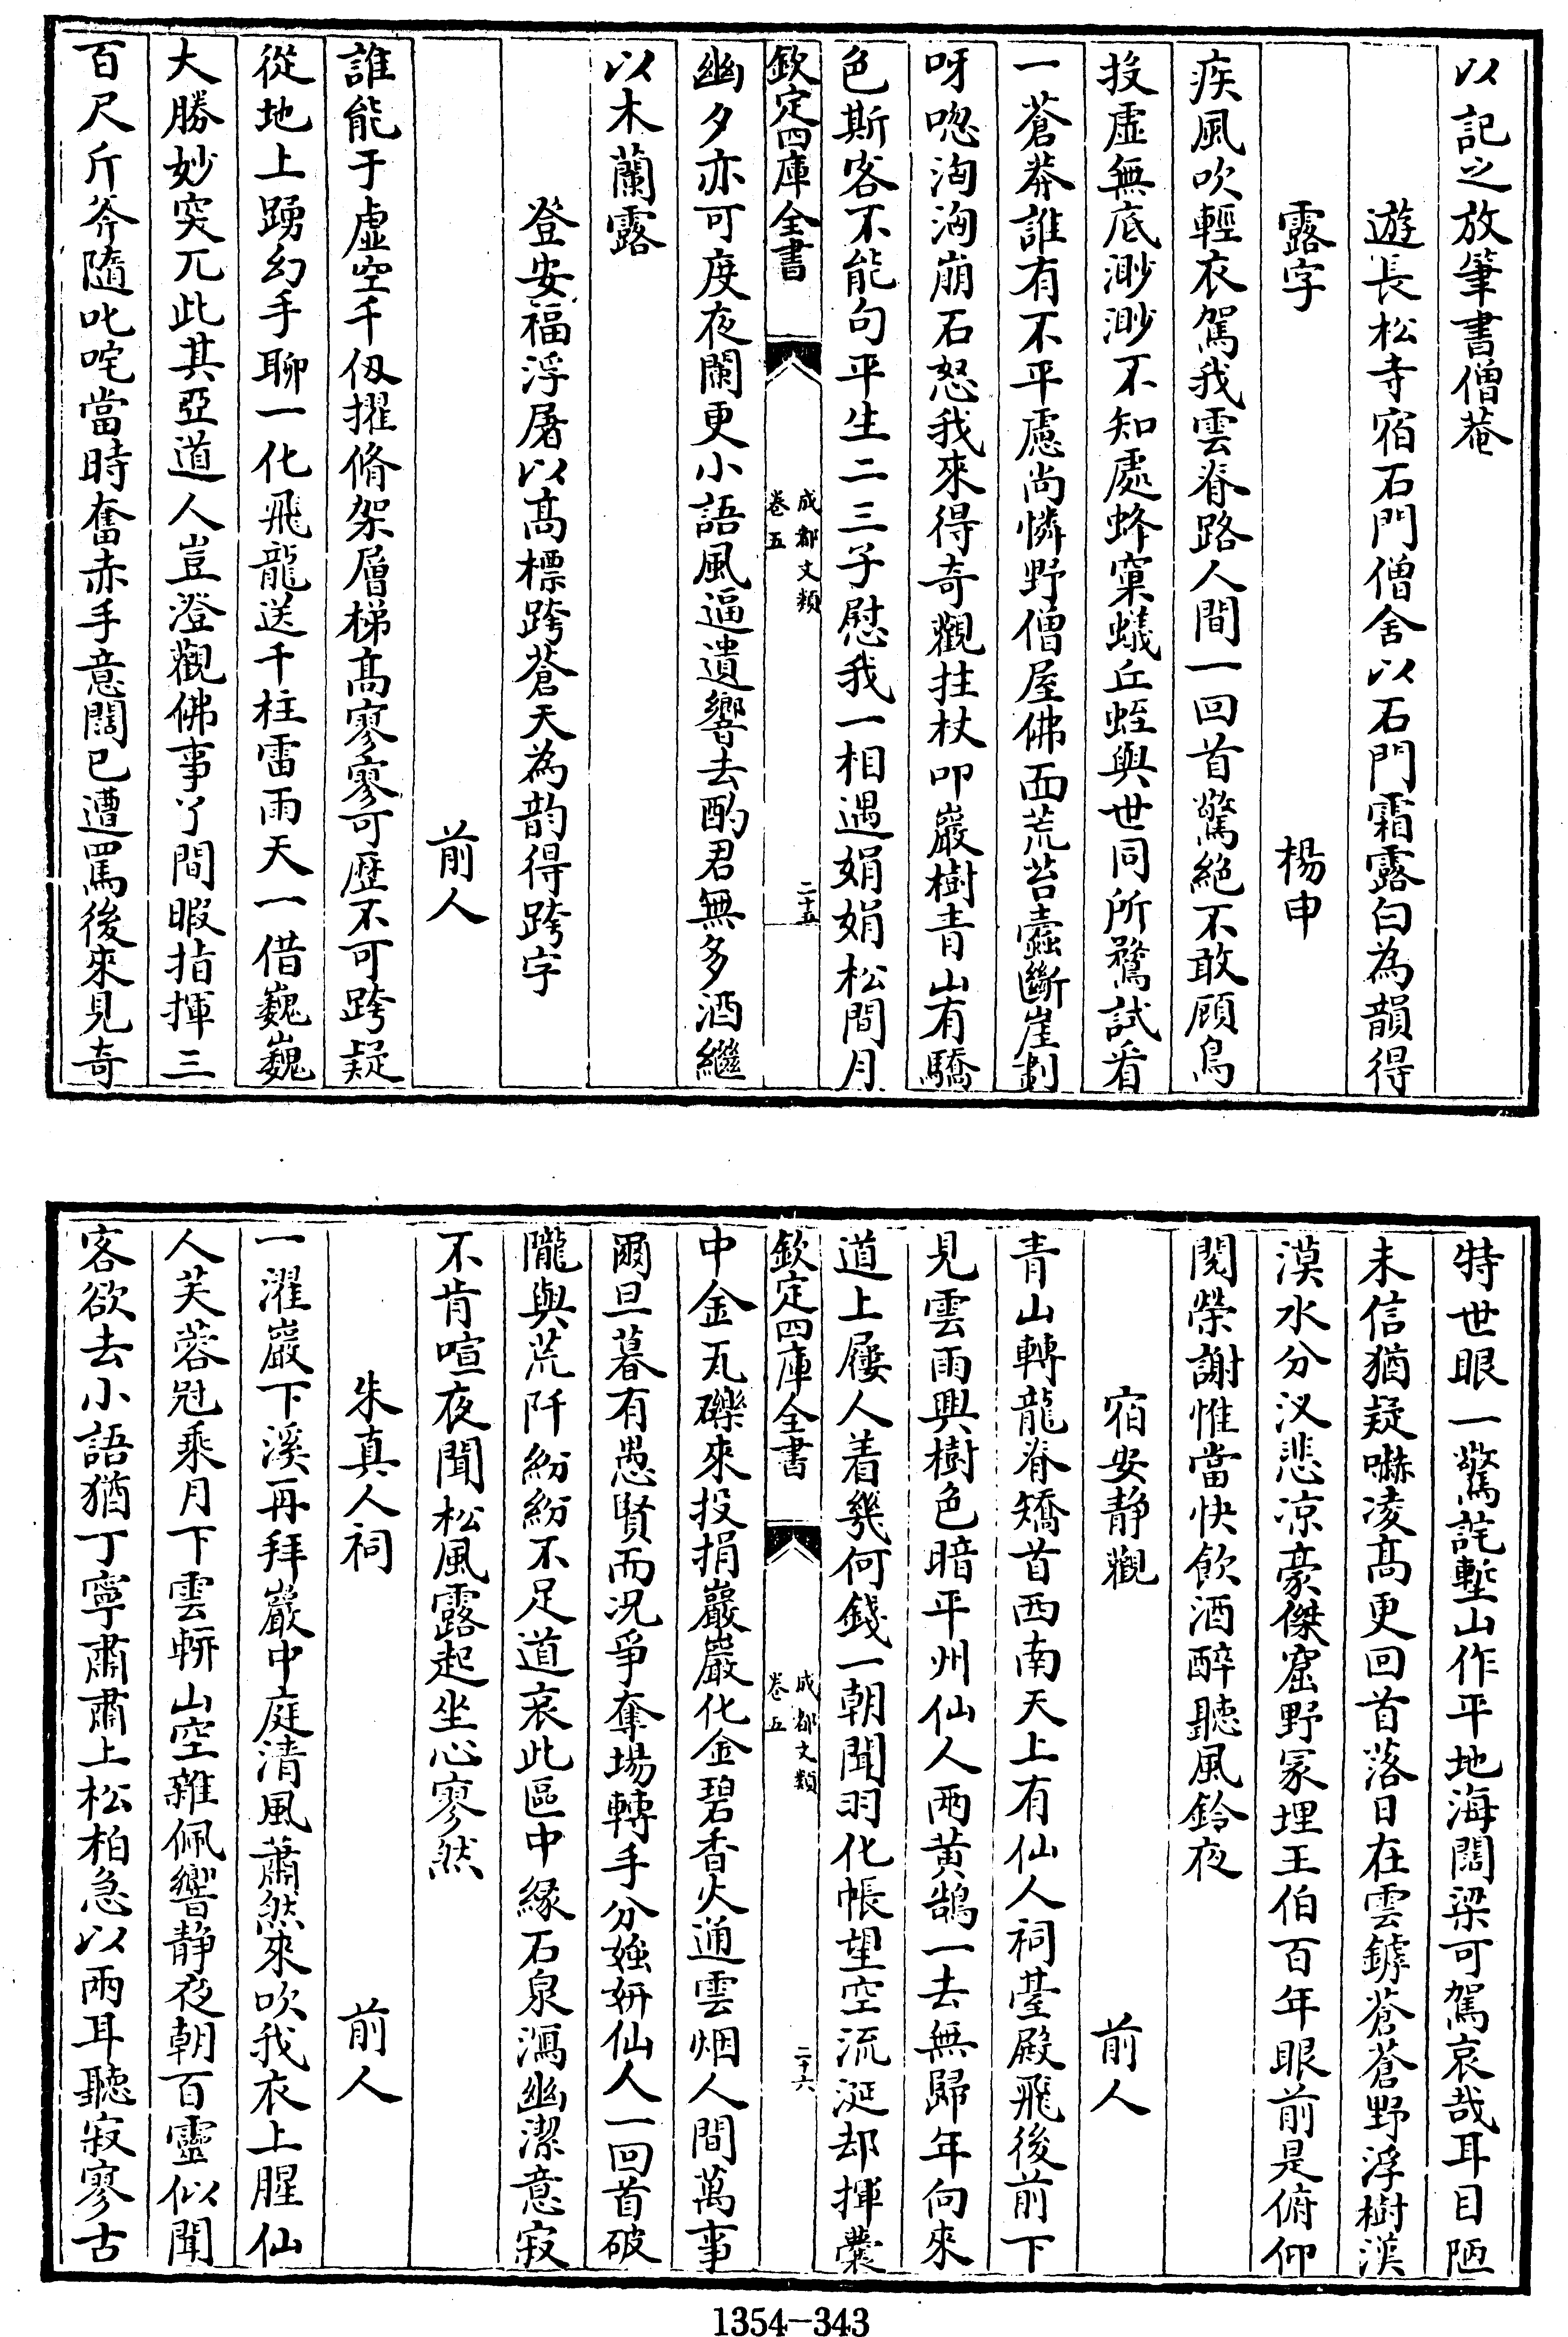 以記之放筆書僧菴
遊長松寺宿石門僧舍以石門霜露白為韻得
露字 楊申
疾風吹輕衣駕我雲脊路人間一回首驚絶不敢顧鳥
投虚無底渺渺不知處蜂窠蟻丘蛭與世同所騖試看
一蒼莽誰有不平慮尚憐野僧屋佛面荒苔蠹斷崖劃
呀㗀洶洶崩石怒我來得奇觀拄杖叩巖樹青山有驕
色斯客不能句平生二三子慰我一相遇娟娟松間月
欽定四庫全書
成都文類
卷五
二十五
幽夕亦可度夜闌更小語風逼遺響去酌君無多酒繼
以木蘭露
登安福浮屠以髙標跨蒼天為韵得跨字
前人
誰能于虚空千仭擢脩架層梯髙寥寥可歴不可跨疑
從地上踴幻手聊一化飛龍送千柱雷雨天一借巍巍
大勝妙突兀此其亞道人豈澄觀佛事了間暇指揮三
百尺斤斧隨叱咤當時奮赤手意闊已遭罵後來見奇
特世眼一驚詫塹山作平地海闊梁可駕哀哉耳目陋
未信猶疑嚇凌髙更回首落日在雲罅蒼蒼野浮樹漠
漠水分汊悲凉豪傑窟野冡埋王伯百年眼前是俯仰
閲榮謝惟當快飲酒醉聽風鈴夜
宿安静觀 前人
青山轉龍脊矯首西南天上有仙人祠䑓殿飛後前下
見雲雨興樹色暗平州仙人兩黄鵠一去無歸年向來
道上屨人着幾何錢一朝聞羽化帳望空流涎却揮囊
欽定四庫全書
成都文類
卷五
二十六
中金瓦礫來投捐巖巖化金碧香火通雲烟人間萬事
爾旦暮有愚賢而况爭奪場轉手分媸妍仙人一回首破
隴與荒阡紛紛不足道哀此區中緣石泉瀉幽潔意寂
不肯喧夜聞松風露起坐心寥然
朱真人祠 前人
一濯巖下溪再拜巖中庭清風蕭然來吹我衣上腥仙
人芙蓉冠乘月下雲軿山空雜佩響静夜朝百靈似聞
客欲去小語猶丁寧肅肅上松柏急以兩耳聽寂寥古
1354—343